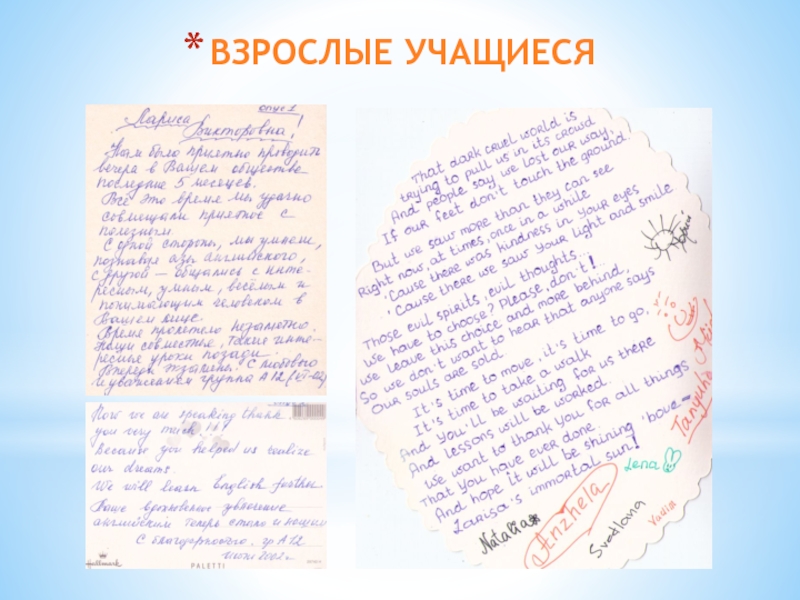 * ВЗРОСЛЫЕ УЧАЩИЕСЯ
опус 1
Лариса
Викторовна!
Нам было приятно проводить
вечера в Вашем обществе
последние 5 месяцев.
Все это время мы удачно
совмещали приятное с
полезным.
С одной стороны, мы умнели,
познавая азы английского,
с другой — общались с инте-
ресным, умным, весёлым и
понимающим человеком в
Вашем лице.
Время пролетело незаметно.
Наши совместные, такие инте-
ресные уроки позади.
Впереди экзамены. С любовью
и уважением группа А12
Now we are speaking thank
you very much
Because you helped us realize
our dreams.
We will learn English further.
Ваше вдохновенное увлечение
английским теперь стало и нашим
С благодарностью. гр А12
Июнь 2002 г.
Hallmark
PALETTI
That dark cruel world is
trying to pull us in its crowd
And people say we lost our way,
If our feet don't touch the ground.
But we saw more than they can see
Right now, at times, once in a while
'Cause there was kindness in Your eyes
'Cause there we saw Your light and smile
Those evil spirits, evil thoughts...
We have to choose? Please, don't!
We leave this choice and more behind,
So we don't want to hear that anyone says
Our souls are sold.
It's time to move, it's time to go,
It's time to take a walk
And You'll be waiting for us there
And lessons will be worked.
We want to thank You for all things
That You have ever done.
And hope it will be shining 'bove—
Larisa's immortal sun!
Natalia
Anzhela
Svetlana
Lena
Tanyusha